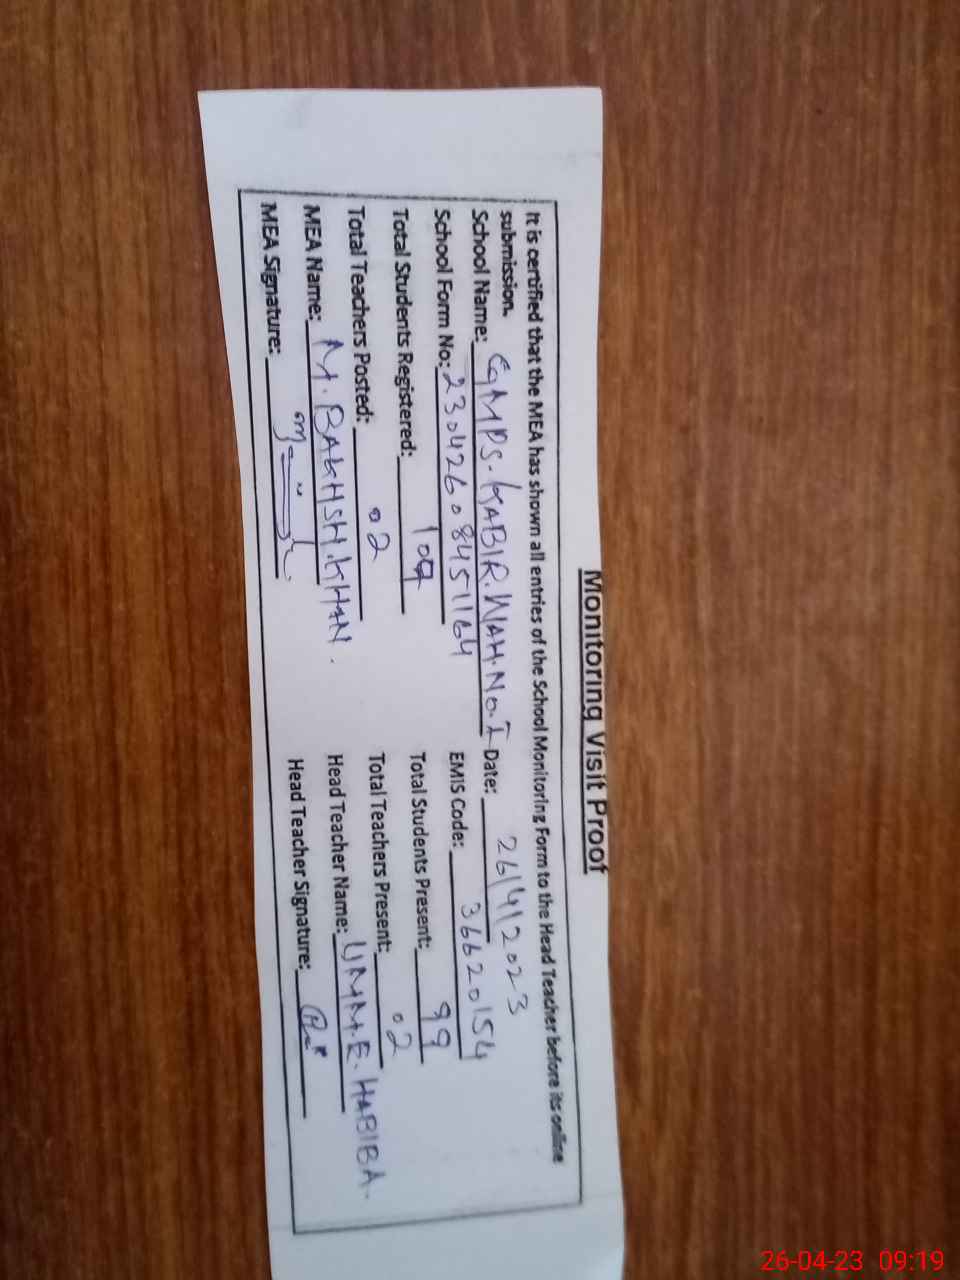 Monitoring Visit Proof
It is certified that the MEA has shown all entries of the School Monitoring Form to the Head Teacher before its online
submission.
School Name: GMPS. KABIR. WAH. No. I Date: 26/4/2023
School Form No: 23042608451164 EMIS Code: 36620154
Total Students Registered: 109 Total Students Present: 99
Total Teachers Posted: 02 Total Teachers Present: 02
MEA Name: M. BAKHSH. KHAN. Head Teacher Name: UMM. E. HABIBA.
MEA Signature: Head Teacher Signature:
26-04-23 09:19